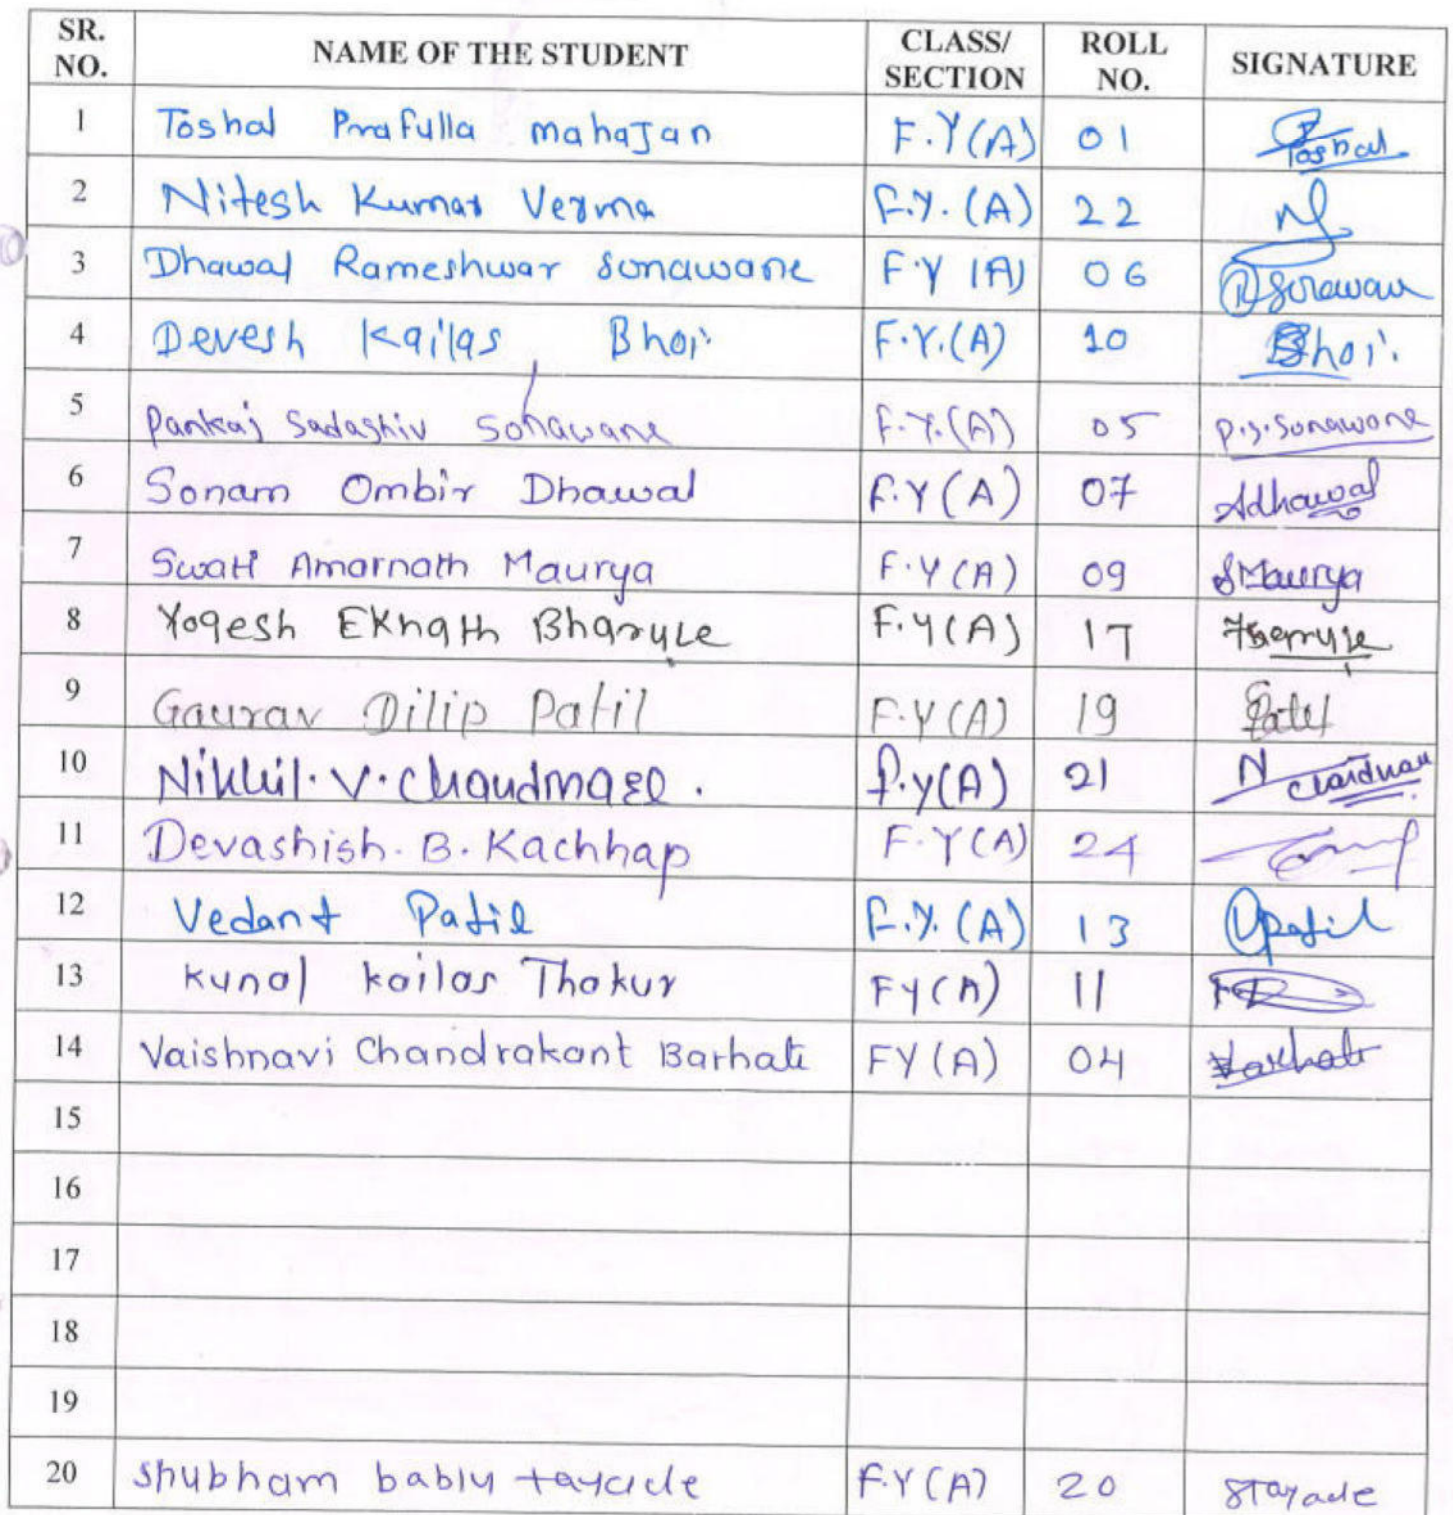 SR. NO. NAME OF THE STUDENT CLASS/ SECTION ROLL NO. SIGNATURE
1 Toshal Prafulla mahaJan F.Y(A) 01 Toshal
2 Nitesh Kumar Verma F.Y.(A) 22
3 Dhawal Rameshwar Sonawane F.Y (A) 06
4 Devesh Kailas Bhoi F.Y.(A) 10 Bhoi
5 Pankaj Sadashiv Sonawane F.Y.(A) 05 P.S.Sonawane
6 Sonam Ombir Dhawal F.Y(A) 07 Sdhawal
7 Swati Amarnath Maurya F.Y(A) 09 SMaurya
8 Yogesh EKnath Bharule F.Y(A) 17
9 Gaurav Dilip Patil F.Y(A) 19 Patil
10 Nikhil.V.Chaudmase. F.y(A) 21
11 Devashish.B.Kachhap F.Y(A) 24
12 Vedant Patil F.Y.(A) 13 Vpatil
13 Kunal kailas Thakur FY(A) 11
14 Vaishnavi Chandrakant Barhate FY(A) 04 Barhate
15
16
17
18
19
20 Shubham bablu tayade F.Y(A) 20 STayade